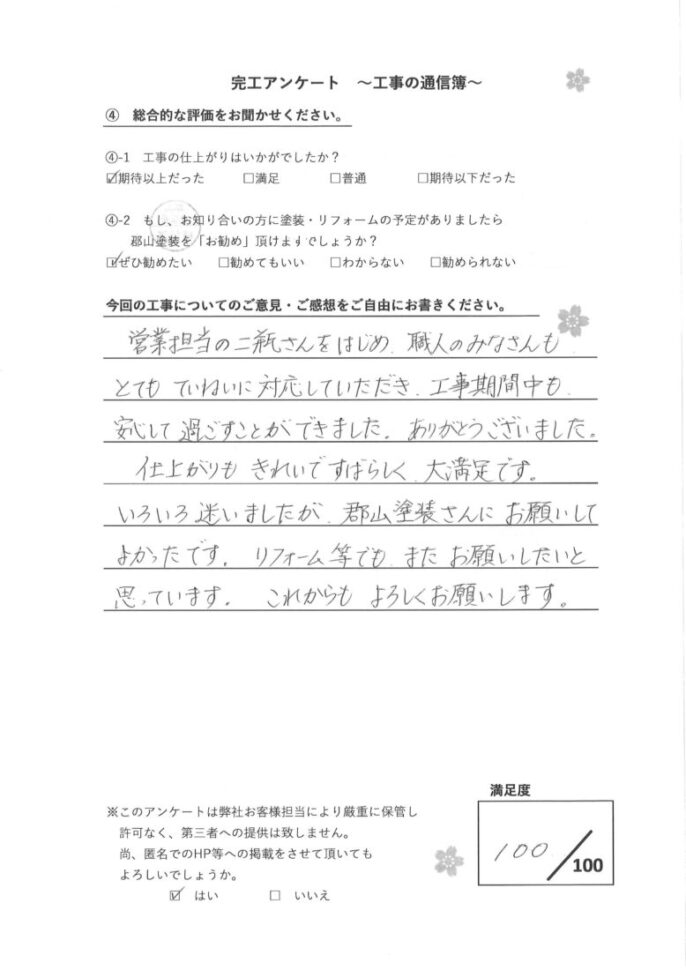 完工アンケート ～工事の通信簿～
④ 総合的な評価をお聞かせください。
④-1 工事の仕上がりはいかがでしたか？
☑期待以上だった □満足 □普通 □期待以下だった
④-2 もし、お知り合いの方に塗装・リフォームの予定がありましたら
郡山塗装を「お勧め」頂けますでしょうか？
☑ぜひ勧めたい □勧めてもいい □わからない □勧められない
今回の工事についてのご意見・ご感想をご自由にお書きください。
営業担当の二瓶さんをはじめ、職人のみなさんも
とても ていねいに対応していただき、工事期間中も
安心して過ごすことができました。ありがとうございました。
仕上がりも きれいですばらしく、大満足です。
いろいろ迷いましたが、郡山塗装さんに お願いして
よかったです。 リフォーム等でも、また お願いしたいと
思っています。 これからも よろしくお願いします。
満足度
100/100
※このアンケートは弊社お客様担当により厳重に保管し
許可なく、第三者への提供は致しません。
尚、匿名でのHP等への掲載をさせて頂いても
よろしいでしょうか。
☑ はい □ いいえ